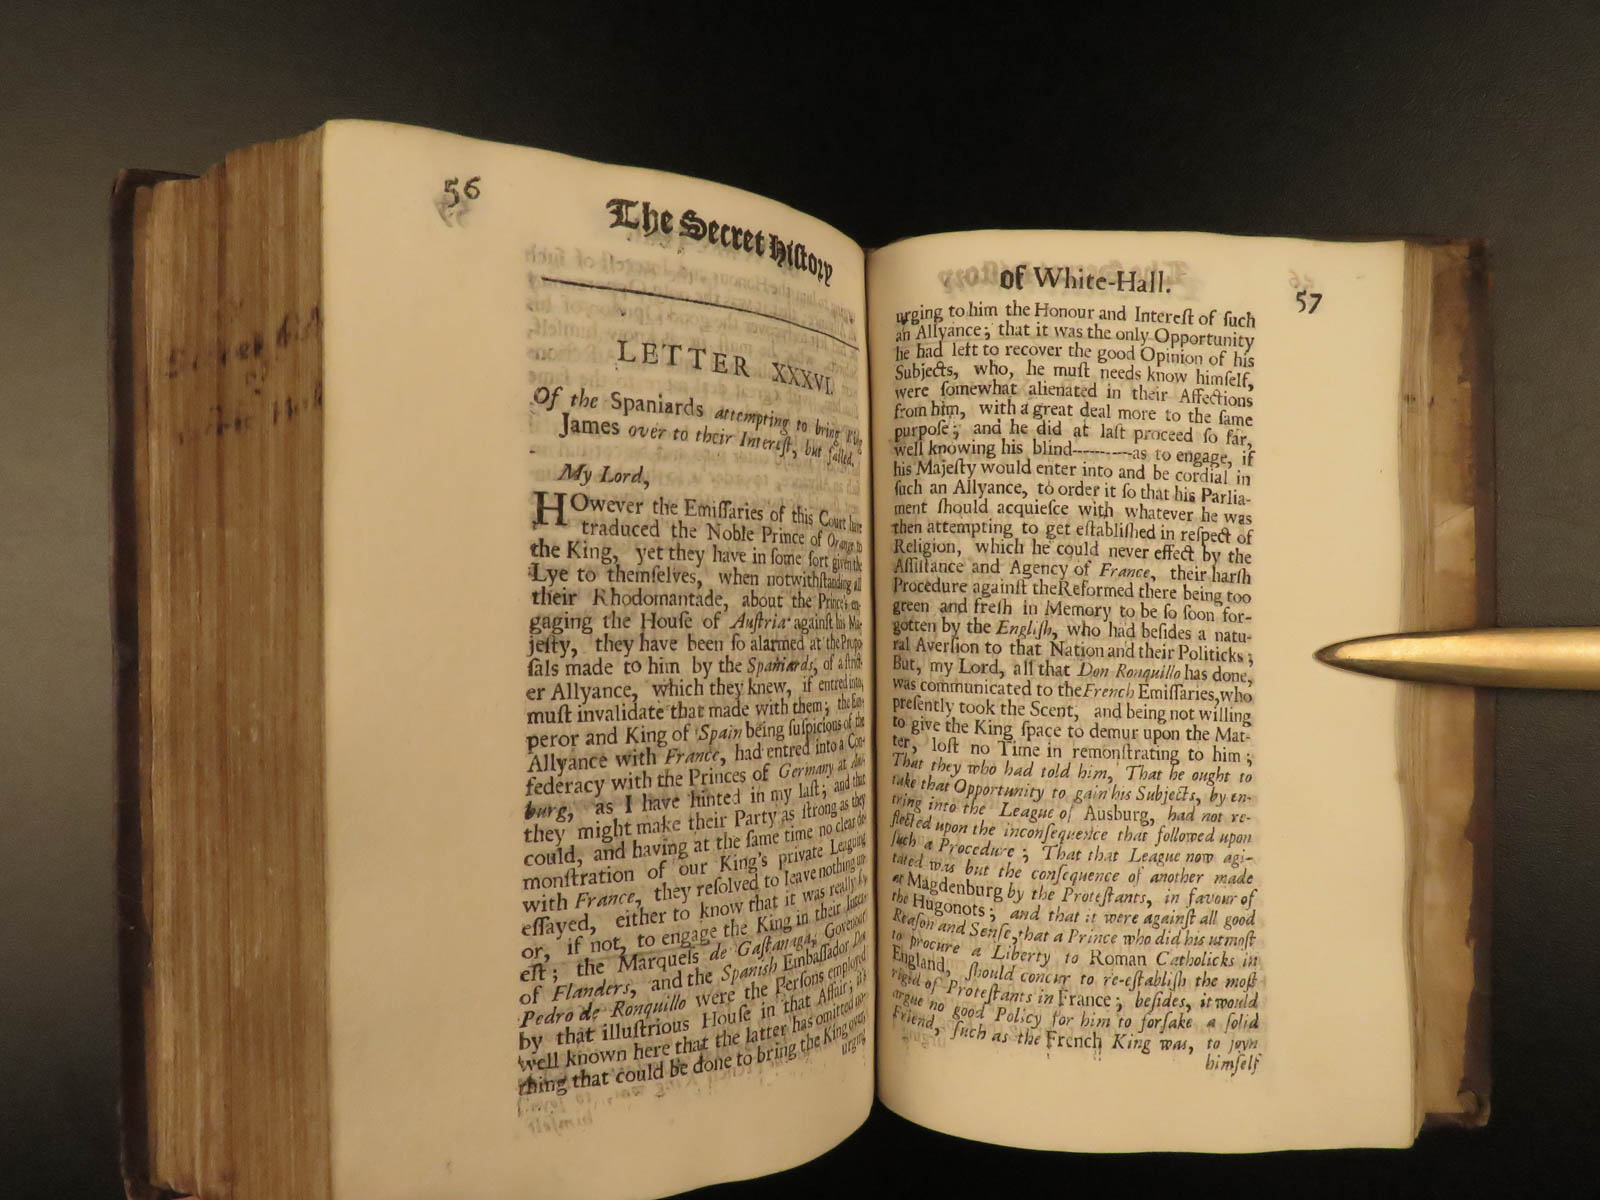 56
The Secret History
LETTER XXXVI.
Of the Spaniards attempting to bring King
James over to their Intereſt, but failed.
My Lord,
HOwever the Emiſſaries of this Court have
traduced the Noble Prince of Orange to
the King, yet they have in ſome ſort given the
Lye to themſelves, when notwithſtanding all
their Rhodomantade, about the Prince's en-
gaging the Houſe of Auſtria againſt his Ma-
jeſty, they have been ſo alarmed at the Propo-
ſals made to him by the Spaniards, of a ſtrict-
er Allyance, which they knew, if entred into,
muſt invalidate that made with them; the Em-
peror and King of Spain being ſuſpicious of the
Allyance with France, had entred into a Con-
federacy with the Princes of Germany at Auſ-
burg, as I have hinted in my laſt; and that
they might make their Party as ſtrong as they
could, and having at the ſame time no clear de-
monſtration of our King's private Leaguing
with France, they reſolved to leave nothing un-
eſſayed, either to know that it was really ſo,
or, if not, to engage the King in their Inter-
eſt; the Marqueſs de Gaſtanaga, Governour
of Flanders, and the Spaniſh Embaſſador Don
Pedro de Ronquillo were the Perſons employed
by that illuſtrious Houſe in that Affair; it's
well known here that the latter has omitted no-
thing that could be done to bring the King over,
urging
of White-Hall.
57
urging to him the Honour and Intereſt of ſuch
an Allyance; that it was the only Opportunity
he had left to recover the good Opinion of his
Subjects, who, he muſt needs know himſelf,
were ſomewhat alienated in their Affections
from him, with a great deal more to the ſame
purpoſe; and he did at laſt proceed ſo far,
well knowing his blind----------as to engage, if
his Majeſty would enter into and be cordial in
ſuch an Allyance, to order it ſo that his Parlia-
ment ſhould acquieſce with whatever he was
then attempting to get eſtabliſhed in reſpect of
Religion, which he could never effect by the
Aſſiſtance and Agency of France, their harſh
Procedure againſt theReformed there being too
green and freſh in Memory to be ſo ſoon for-
gotten by the Engliſh, who had beſides a natu-
ral Averſion to that Nation and their Politicks;
But, my Lord, all that Don Ronquillo has done,
was communicated to the French Emiſſaries, who
preſently took the Scent, and being not willing
to give the King ſpace to demur upon the Mat-
ter, loſt no Time in remonſtrating to him;
That they who had told him, That he ought to
take that Opportunity to gain his Subjects, by en-
tring into the League of Ausburg, had not re-
flected upon the inconſequence that followed upon
ſuch a Procedure; That that League now agi-
tated was but the conſequence of another made
at Magdenburg by the Proteſtants, in favour of
the Hugonots; and that it were againſt all good
Reaſon and Senſe, that a Prince who did his utmoſt
to procure a Liberty to Roman Catholicks in
England, ſhould concur to re-eſtabliſh the moſt
rigid of Proteſtants in France; beſides, it would
argue no good Policy for him to forſake a ſolid
Friend, ſuch as the French King was, to joyn
himſelf